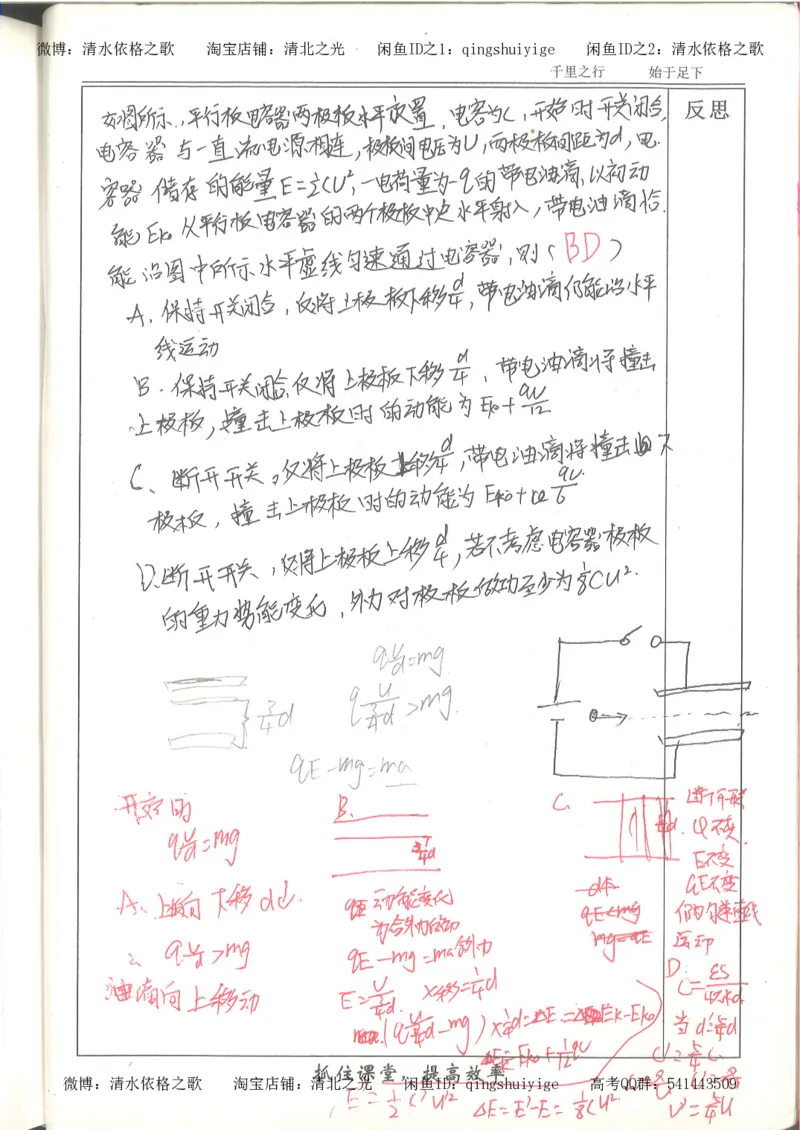 微博：清水依格之歌 淘宝店铺：清北之光 闲鱼ID之1：qingshuiyige 闲鱼ID之2：清水依格之歌
千里之行 始于足下
反思
如图所示，平行板电容器两极板水平放置，电容为C，开始时开关闭合，
电容器与一直流电源相连，极板间电压为U，两极板间距为d，电
容器储存的能量E=½CU²，一电荷量为-q的带电油滴，以初动
能Eko从平行板电容器的两个极板中央水平射入，带电油滴恰
能沿图中所示水平虚线匀速通过电容器，则（BD）
A、保持开关闭合，仅将上极板下移d/4，带电油滴仍能沿水平
线运动
B、保持开关闭合，仅将上极板下移d/4，带电油滴将撞击
上极板，撞击上极板时的动能为Eko+qU/12
C、断开开关，仅将上极板上移d/4，带电油滴将撞击下
极板，撞击上极板时的动能为Eko+qU/6
D、断开开关，仅将上极板上移d/4，若不考虑电容器极板
的重力势能变化，外力对极板做功至少为⅛CU²．
qU/d=mg
¾d
qU/¾d>mg.
qE-mg=ma
开始时
qU/d=mg
A、上极板下移d↓
qU/d>mg
油滴向上移动
B.
¾d
动能变化
为合外力做功
qE-mg=ma合外力
E=U/¾d. x移=¼d
(qU/¾d-mg)x¼d=ΔE=Ek-Eko
Ek=Eko+1/12qU
C.
断开开关
Q不变
E不变
qE不变
仍匀速直线
运动
qE<mg
mg=qE
D.
C=εS/4πkd
当d'=5/4d
U'=5/4U
E'=½C'U'²
ΔE=E'-E=⅛CU².
抓住课堂，提高效率
微博：清水依格之歌 淘宝店铺：清北之光 闲鱼ID：qingshuiyige 高考QQ群：541443509